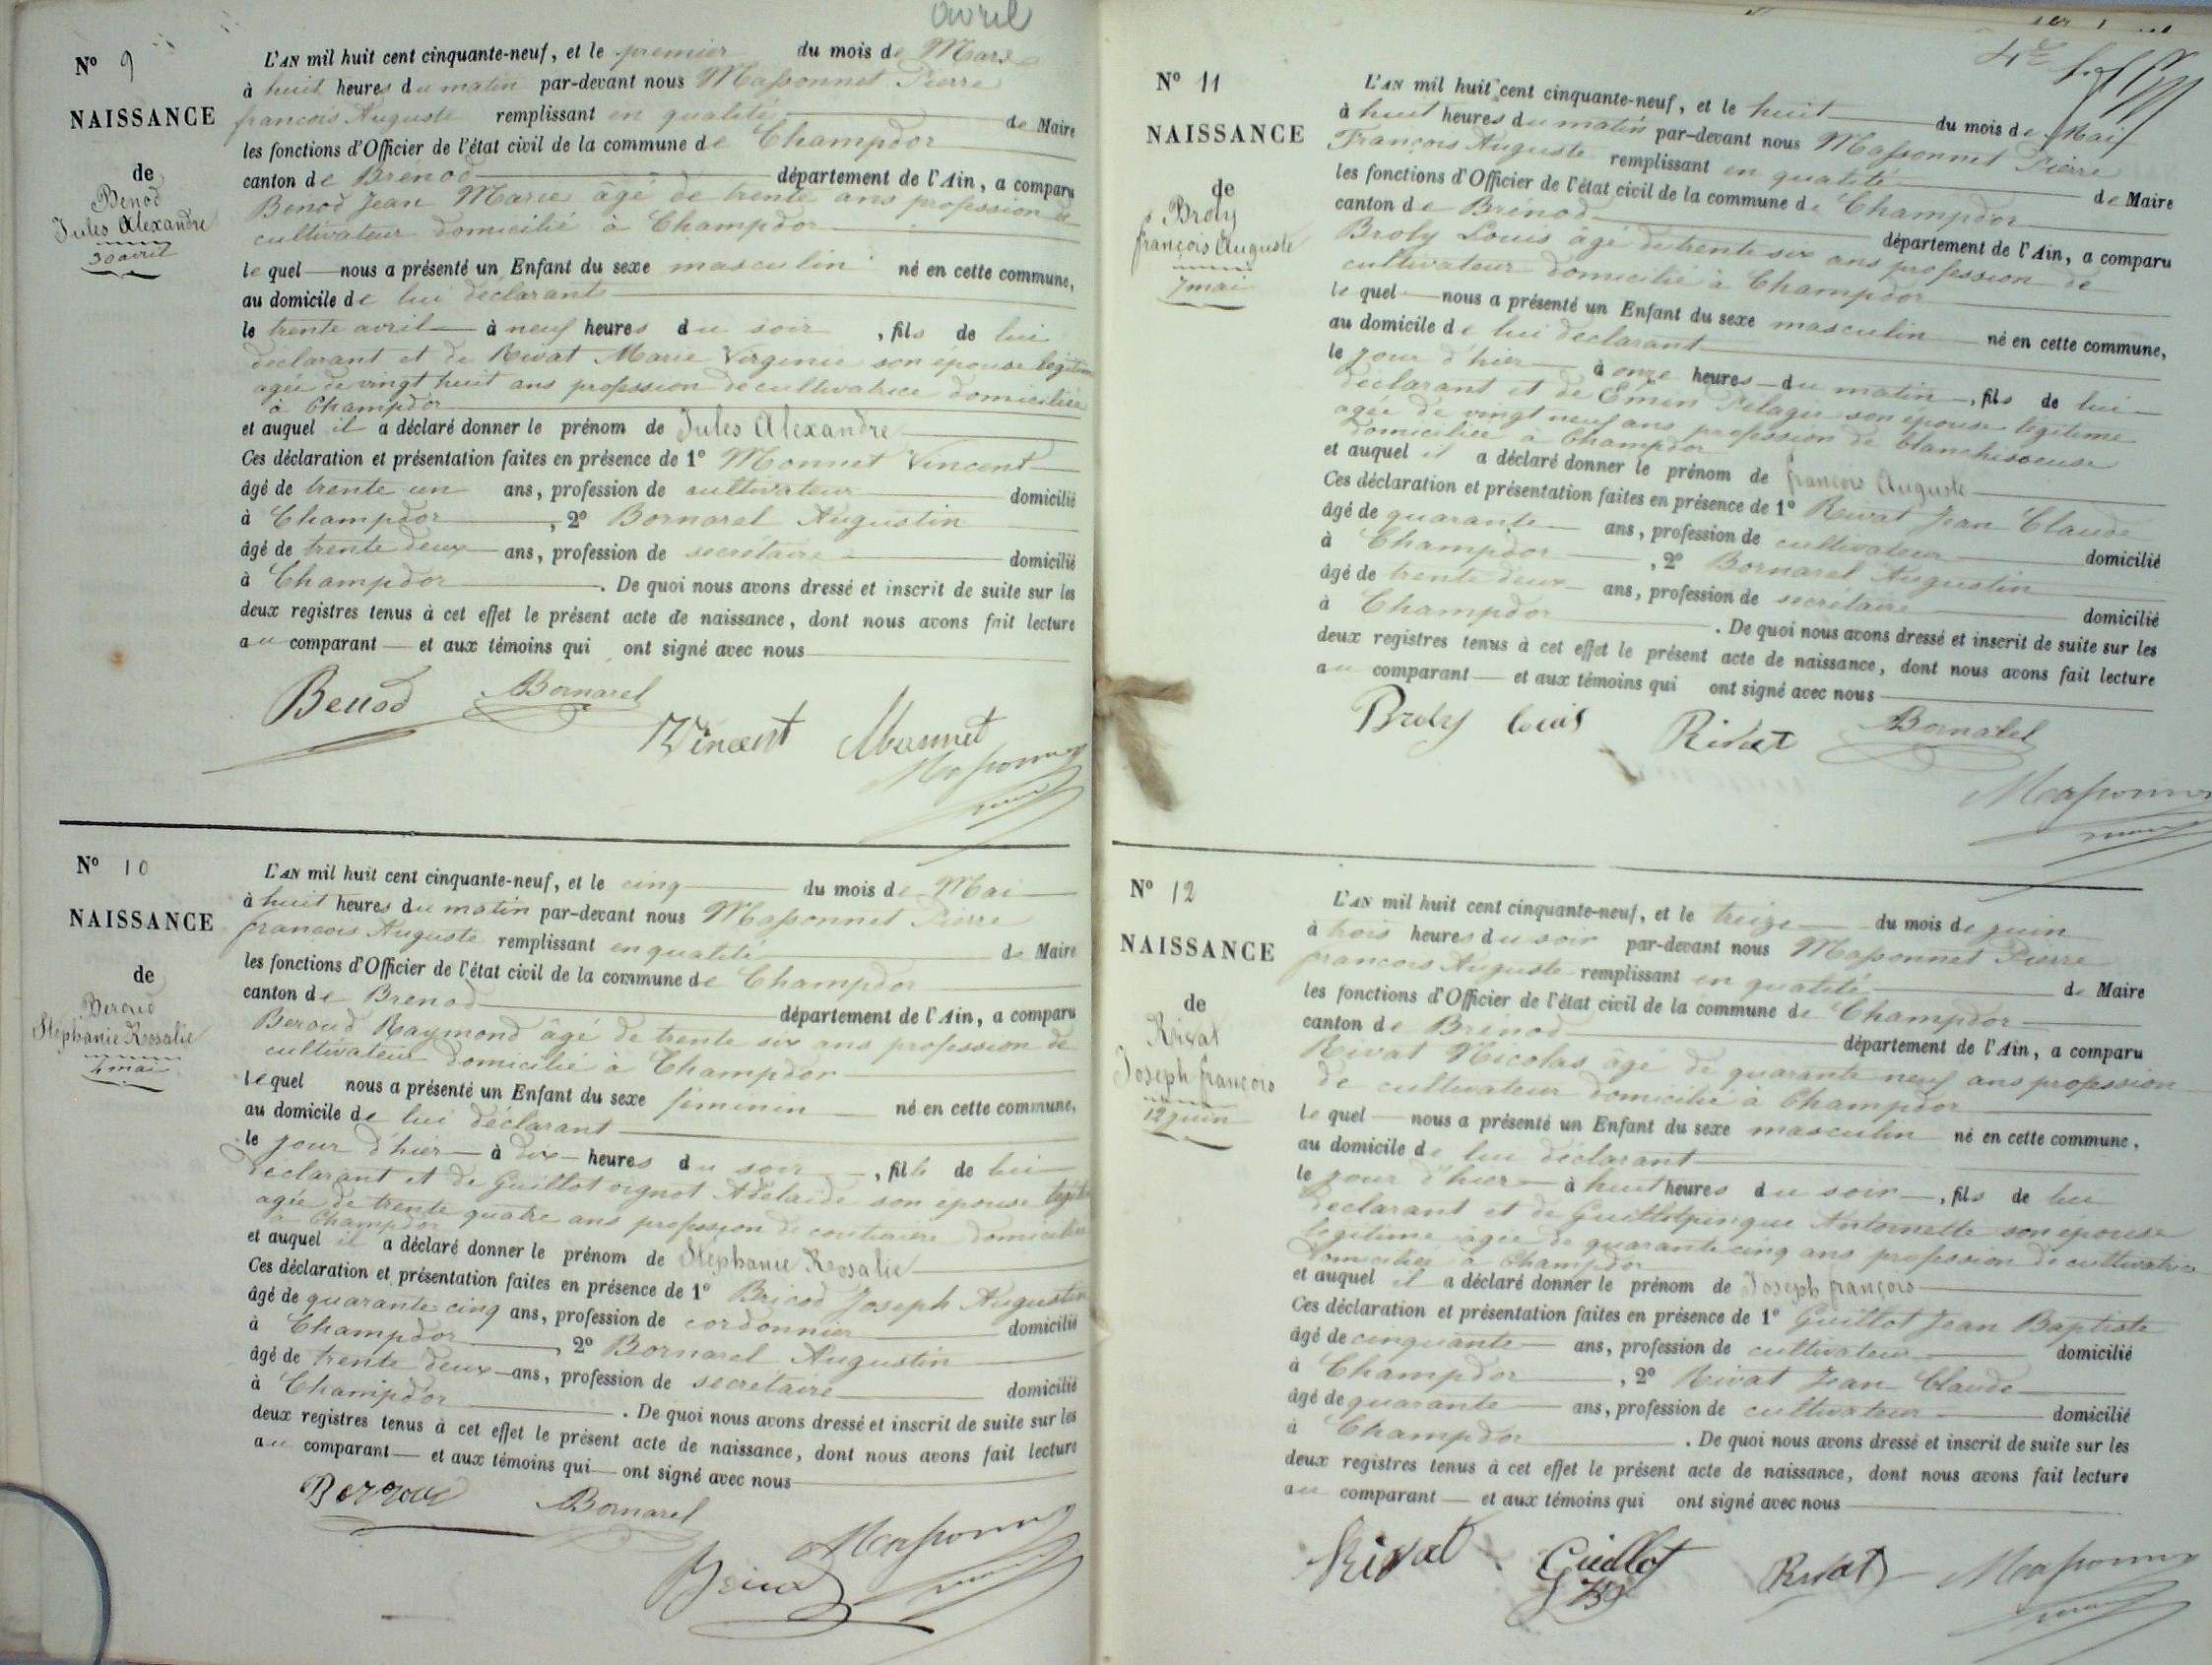 avril
N° 9
NAISSANCE
de
Benod
Jules Alexandre
30 avril
L'AN mil huit cent cinquante-neuf, et le premier du mois de Mars
à huit heures du matin par-devant nous Massonnet Pierre
francois Auguste remplissant en qualité de Maire
les fonctions d'Officier de l'état civil de la commune de Champdor
canton de Brenod département de l'Ain, a comparu
Benod Jean Marie âgé de trente ans profession de
cultivateur domicilié à Champdor
lequel nous a présenté un Enfant du sexe masculin né en cette commune,
au domicile de lui declarant
le trente avril à neuf heures du soir, fils de lui
declarant et de Rivat Marie Virginie son epouse legitime
agée de vingt huit ans profession de cultivatrice domiciliée
à Champdor
et auquel il a déclaré donner le prénom de Jules Alexandre
Ces déclaration et présentation faites en présence de 1° Monnet Vincent
âgé de trente un ans, profession de cultivateur domicilié
à Champdor, 2° Bornarel Augustin
âgé de trente deux ans, profession de secrétaire domicilié
à Champdor. De quoi nous avons dressé et inscrit de suite sur les
deux registres tenus à cet effet le présent acte de naissance, dont nous avons fait lecture
au comparant et aux témoins qui ont signé avec nous
Benod Bornarel
Vincent Monnet
Massonnet
N° 10
NAISSANCE
de
Beroud
Stéphanie Rosalie
4 mai
L'AN mil huit cent cinquante-neuf, et le cinq du mois de Mai
à huit heures du matin par-devant nous Massonnet Pierre
francois Auguste remplissant en qualité de Maire
les fonctions d'Officier de l'état civil de la commune de Champdor
canton de Brenod département de l'Ain, a comparu
Beroud Raymond âgé de trente six ans profession de
cultivateur domicilié à Champdor
lequel nous a présenté un Enfant du sexe féminin né en cette commune,
au domicile de lui déclarant
le jour d'hier à dix heures du soir, fille de lui
declarant et de Guillot Adelaide son epouse legitime
agée de trente quatre ans profession de couturière domiciliée
à Champdor
et auquel il a déclaré donner le prénom de Stephanie Rosalie
Ces déclaration et présentation faites en présence de 1° Bricod Joseph Augustin
âgé de quarante cinq ans, profession de cordonnier domicilié
à Champdor, 2° Bornarel Augustin
âgé de trente deux ans, profession de secrétaire domicilié
à Champdor. De quoi nous avons dressé et inscrit de suite sur les
deux registres tenus à cet effet le présent acte de naissance, dont nous avons fait lecture
au comparant et aux témoins qui ont signé avec nous
Bornarel
Massonnet
N° 11
NAISSANCE
de
Broly
françois Auguste
7 mai
L'AN mil huit cent cinquante-neuf, et le huit du mois de Mai
à huit heures du matin par-devant nous Massonnet Pierre
François Auguste remplissant en qualité de Maire
les fonctions d'Officier de l'état civil de la commune de Champdor
canton de Brénod département de l'Ain, a comparu
Broly Louis âgé de trente six ans profession de
cultivateur domicilié à Champdor
lequel nous a présenté un Enfant du sexe masculin né en cette commune,
au domicile de lui declarant
le jour d'hier à onze heures du matin, fils de lui
déclarant et de Emin Pelagie son épouse legitime
agée de vingt neuf ans profession de blanchisseuse
domiciliée à Champdor
et auquel il a déclaré donner le prénom de françois Auguste
Ces déclaration et présentation faites en présence de 1° Rivat Jean Claude
âgé de quarante ans, profession de cultivateur domicilié
à Champdor, 2° Bornarel Augustin
âgé de trente deux ans, profession de secrétaire domicilié
à Champdor. De quoi nous avons dressé et inscrit de suite sur les
deux registres tenus à cet effet le présent acte de naissance, dont nous avons fait lecture
au comparant et aux témoins qui ont signé avec nous
Broly Louis Rivat Bornarel
Massonnet
N° 12
NAISSANCE
de
Rivat
Joseph françois
12 juin
L'AN mil huit cent cinquante-neuf, et le treize du mois de juin
à trois heures du soir par-devant nous Massonnet Pierre
francois Auguste remplissant en qualité de Maire
les fonctions d'Officier de l'état civil de la commune de Champdor
canton de Brénod département de l'Ain, a comparu
Rivat Nicolas âgé de quarante neuf ans profession
de cultivateur domicilié à Champdor
lequel nous a présenté un Enfant du sexe masculin né en cette commune.
au domicile de lui déclarant
le jour d'hier à huit heures du soir, fils de lui
declarant et de Antoinette son epouse
legitime agée de quarante cinq ans profession de cultivatrice
domiciliée à Champdor
et auquel il a déclaré donner le prénom de Joseph françois
Ces déclaration et présentation faites en présence de 1° Guillot Jean Baptiste
âgé de cinquante ans, profession de cultivateur domicilié
à Champdor, 2° Rivat Jean Claude
âgé de quarante ans, profession de cultivateur domicilié
à Champdor. De quoi nous avons dressé et inscrit de suite sur les
deux registres tenus à cet effet le présent acte de naissance, dont nous avons fait lecture
au comparant et aux témoins qui ont signé avec nous
Rivat Guillot Rivat Massonnet